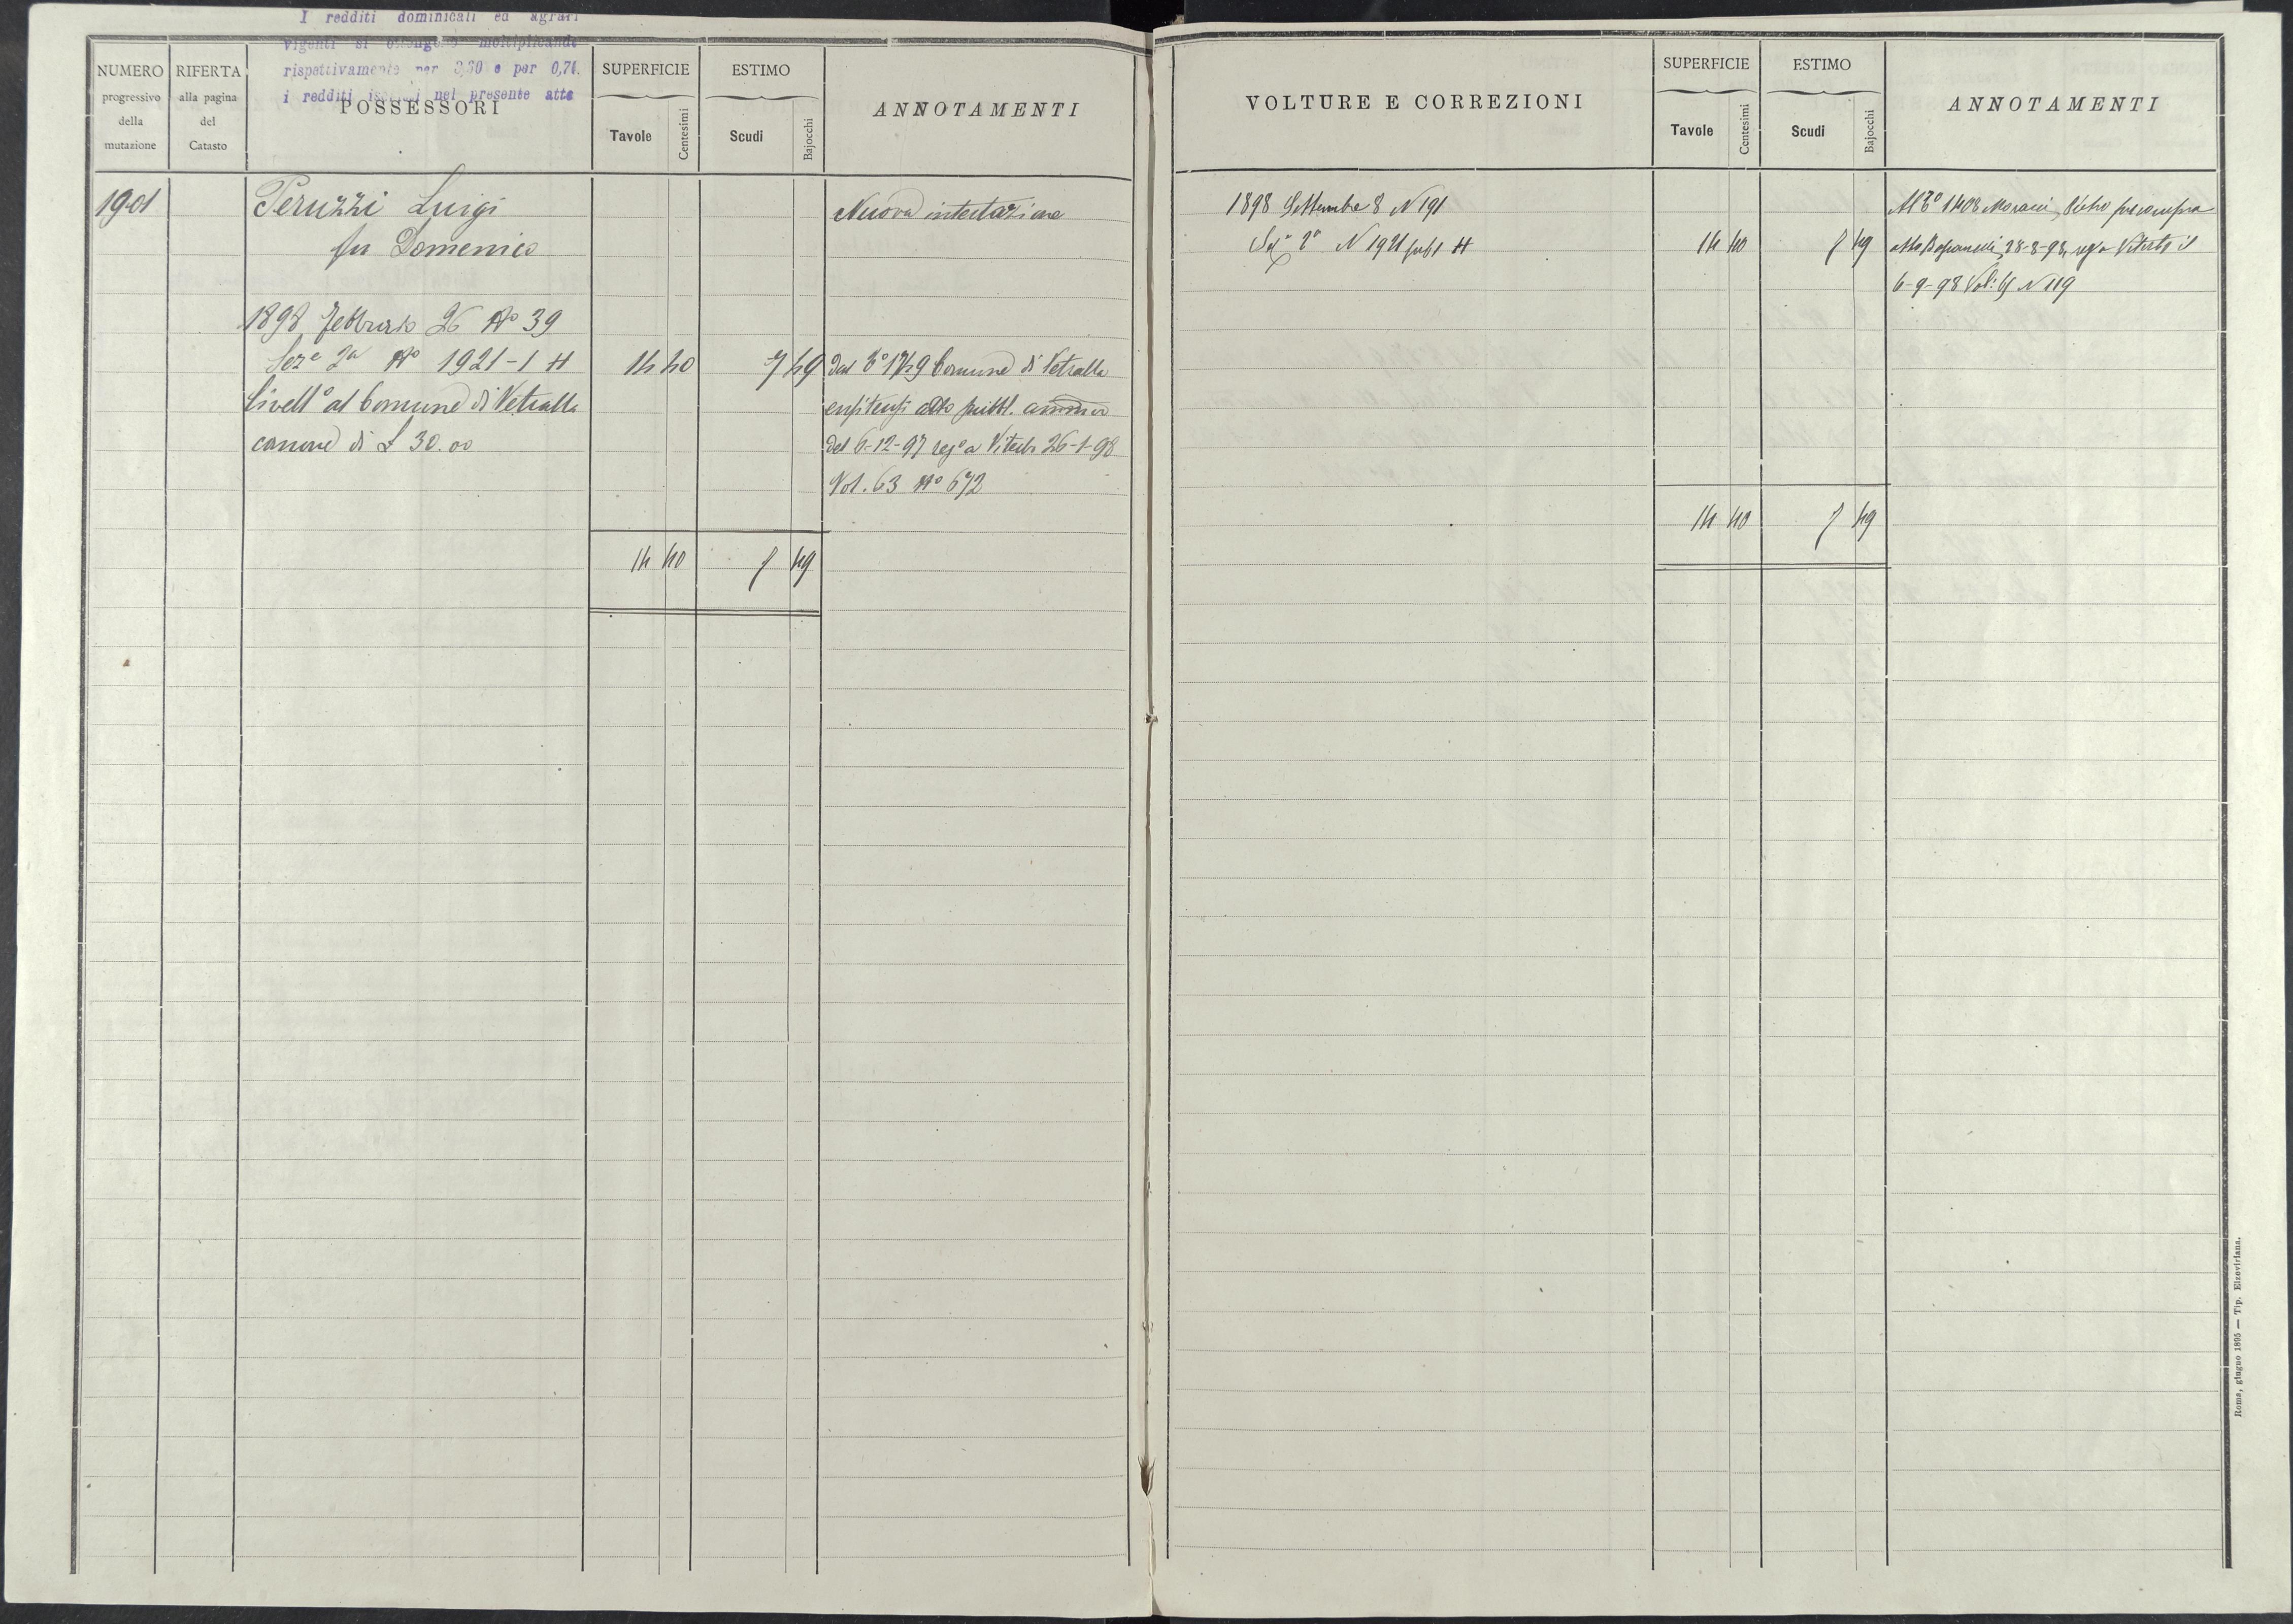 I redditi dominicali ed agrari
vigenti si ottengono moltiplicando
rispettivamente per 3,60 e per 0,74.
i redditi iscritti nel presente atto
NUMERO progressivo della mutazione
RIFERTA alla pagina del Catasto
POSSESSORI
SUPERFICIE
Tavole Centesimi
ESTIMO
Scudi Bajocchi
ANNOTAMENTI
1901 Peruzzi Luigi Nuova intestazione
fu Domenico
1898 Febbraio 26 No 39
Seze 2a No 1921-1 H 14 40 7 49 Dal 1749 Comune di Vetralla
Livello al Comune di Vetralla enfiteusi atto pubbl. ammivo
canone di L 30.00 del 6-12-97 rego a Viterbo 26-1-98
Vol. 63 No 672
14 40 7 49
VOLTURE E CORREZIONI
SUPERFICIE
Tavole Centesimi
ESTIMO
Scudi Bajocchi
ANNOTAMENTI
1898 Settembre 8 N 191 Al 1408 Pietro per compra
Seze 2a N 1921 sub 1 H 14 40 7 49 atto 28-8-98 rego a Viterbo il
6-9-98 Vol: N 119
14 40 7 49
Roma, giugno 1895 — Tip. Elzeviriana.